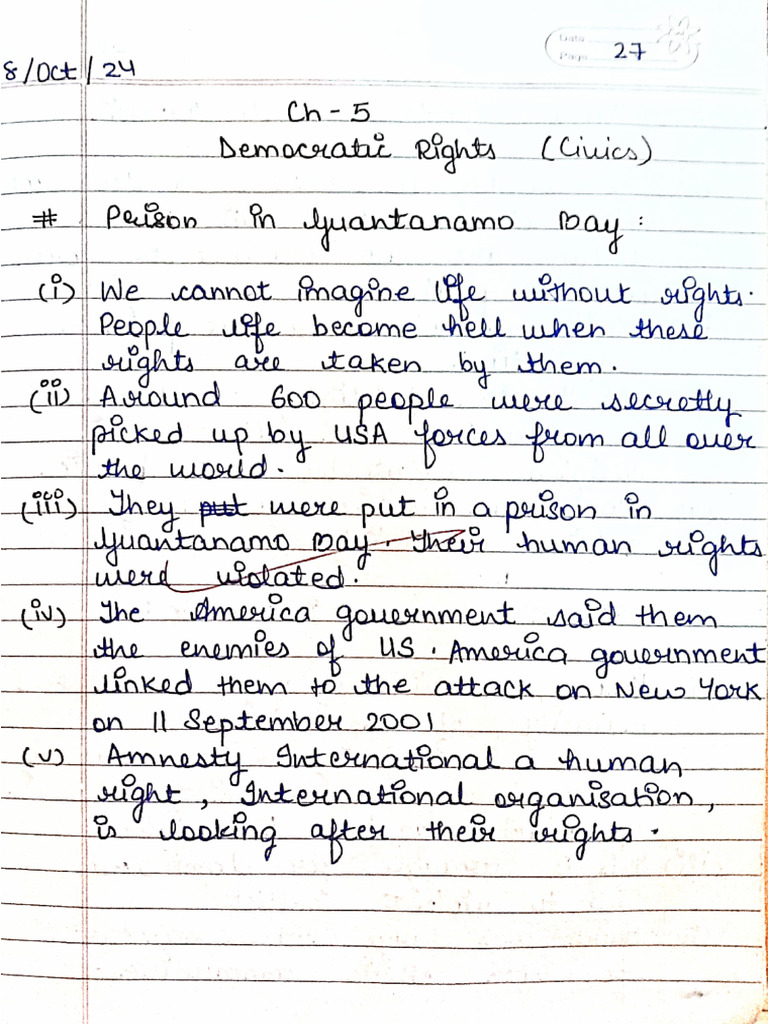 Date
Page 27
8/Oct/24
Ch - 5
Democratic Rights (Civics)
# Prison in Guantanamo Bay :
(i) We cannot imagine life without rights.
People life become hell when these
rights are taken by them.
(ii) Around 600 people were secretly
picked up by USA forces from all over
the world.
(iii) They put were put in a prison in
Guantanamo Bay. Their human rights
were violated.
(iv) The America government said them
the enemies of US. America government
linked them to the attack on New York
on 11 September 2001
(v) Amnesty International a human
right, International organisation,
is looking after their rights.